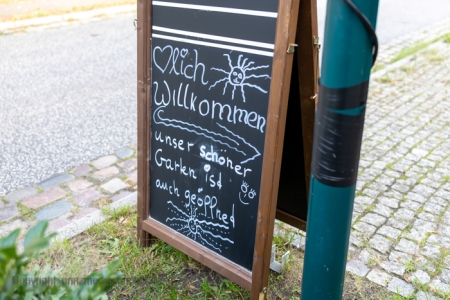 ♡lich
Willkommen
unser schöner
Garten ist
auch geöffnet